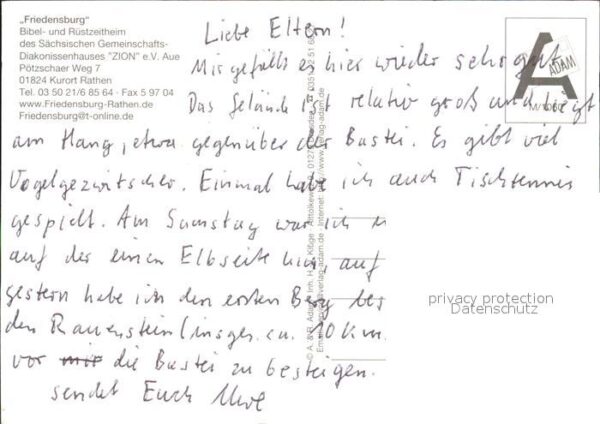 „Friedensburg"
Bibel- und Rüstzeitheim
des Sächsischen Gemeinschafts-
Diakonissenhauses "ZION" e.V. Aue
Pötzschaer Weg 7
01824 Kurort Rathen
Tel. 03 50 21/6 85 64 · Fax 5 97 04
www.Friedensburg-Rathen.de
Friedensburg@t-online.de
Liebe Eltern!
Mir gefällt es hier wieder sehr gut.
Das Gelände ist relativ groß und liegt
am Hang, etwa gegenüber der Bastei. Es gibt viel
Vogelgezwitscher. Einmal habe ich auch Tischtennis
gespielt. Am Samstag war ich
auf der einen Elbseite auf
gestern habe ich den ersten Berg
den Rauenstein (insges. ca. 10 km.
vor mir die Bastei zu besteigen.
sendet Euch Uwe
A
ADAM
privacy protection
Datenschutz